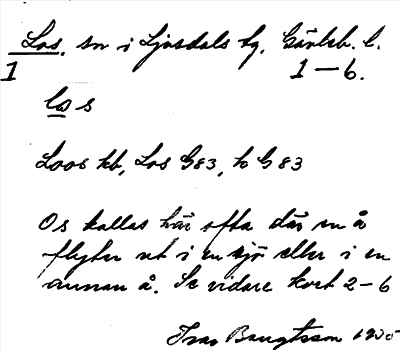 Los. sn i Ljusdals tg. Gävleb. l.
1 1–6.
los
Loos kb, Los G83, to G83
Os kallas här ofta där en å
flyter ut i en sjö eller i en
annan å. Se vidare kort 2–6
Ivar Bengtsson